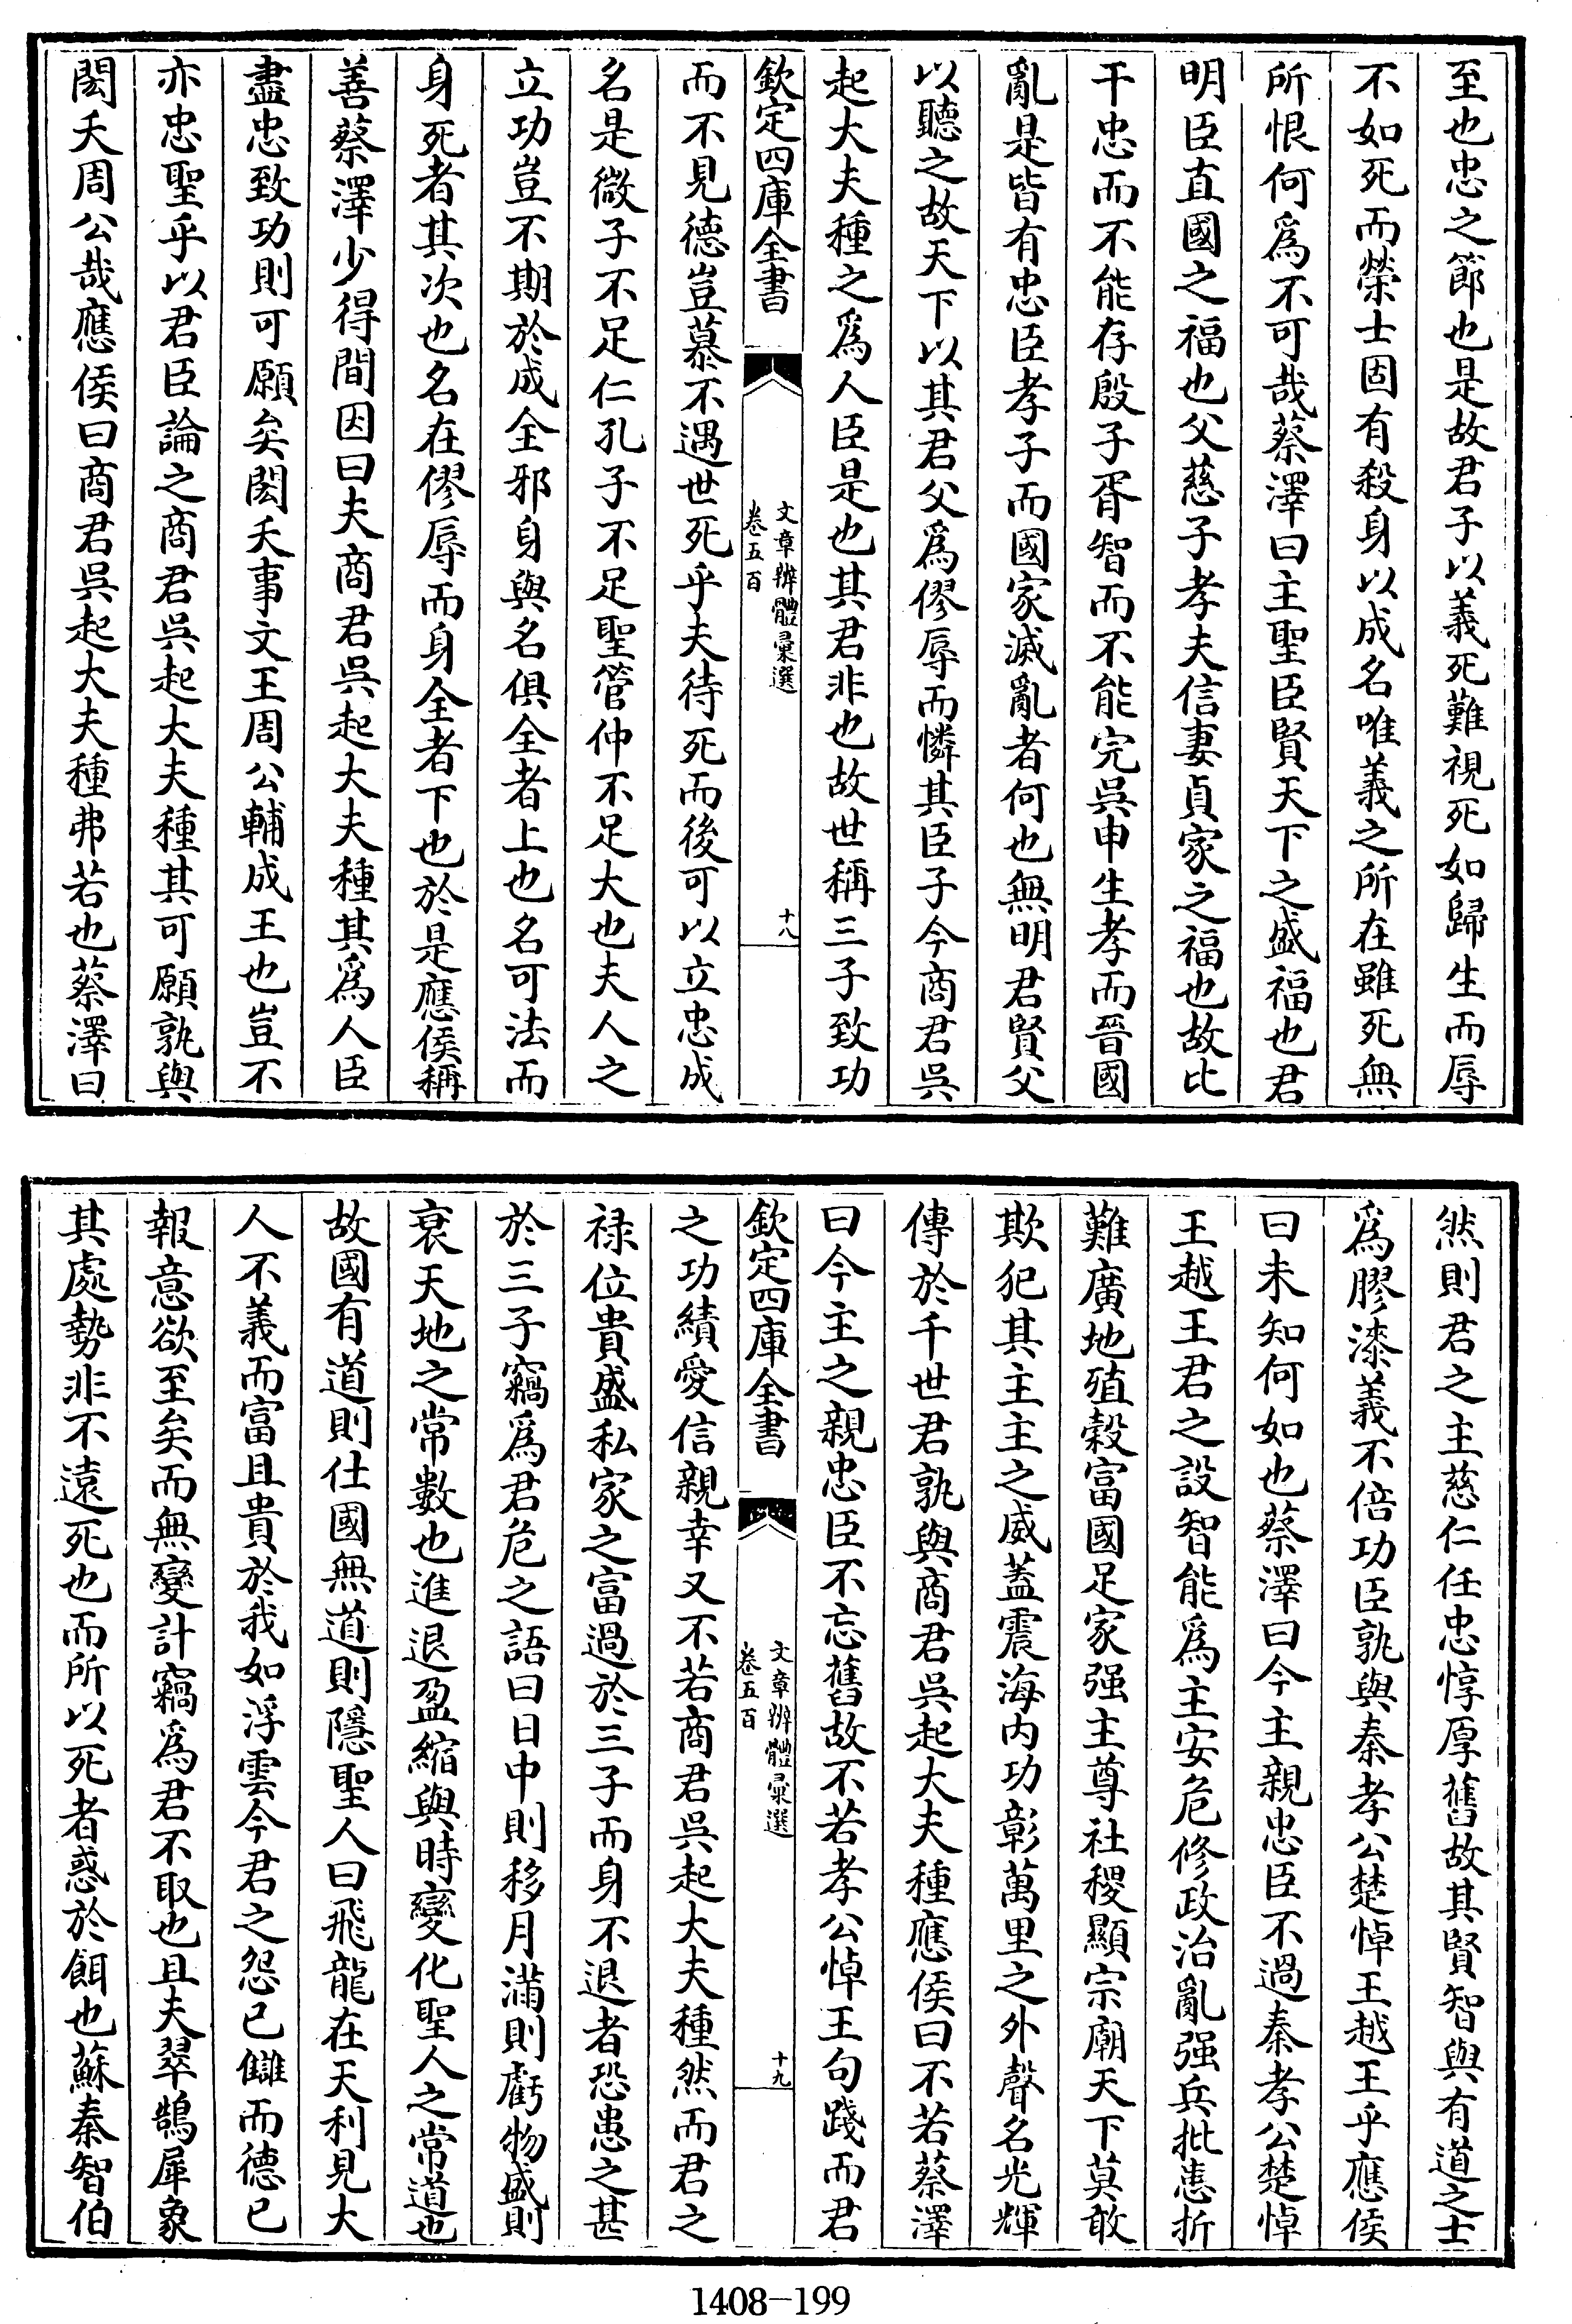 至也忠之節也是故君子以義死難視死如歸生而辱
不如死而榮士固有殺身以成名唯義之所在雖死無
所恨何爲不可哉蔡澤曰主聖臣賢天下之盛福也君
明臣直國之福也父慈子孝夫信妻貞家之福也故比
干忠而不能存殷子胥智而不能完吳申生孝而晉國
亂是皆有忠臣孝子而國家滅亂者何也無明君賢父
以聽之故天下以其君父爲僇辱而憐其臣子今商君吳
起大夫種之爲人臣是也其君非也故世稱三子致功
欽定四庫全書
文章辨體彚選
卷五百
十八
而不見德豈慕不遇世死乎夫待死而後可以立忠成
名是微子不足仁孔子不足聖管仲不足大也夫人之
立功豈不期於成全邪身與名俱全者上也名可法而
身死者其次也名在僇辱而身全者下也於是應侯稱
善蔡澤少得間因曰夫商君吳起大夫種其爲人臣
盡忠致功則可願矣閎夭事文王周公輔成王也豈不
亦忠聖乎以君臣論之商君吳起大夫種其可願孰與
閎夭周公哉應侯曰商君吳起大夫種弗若也蔡澤曰
然則君之主慈仁任忠惇厚舊故其賢智與有道之士
爲膠漆義不倍功臣孰與秦孝公楚悼王越王乎應侯
曰未知何如也蔡澤曰今主親忠臣不過秦孝公楚悼
王越王君之設智能爲主安危修政治亂强兵批患折
難廣地殖穀富國足家强主尊社稷顯宗廟天下莫敢
欺犯其主主之威蓋震海内功彰萬里之外聲名光輝
傳於千世君孰與商君吳起大夫種應侯曰不若蔡澤
曰今主之親忠臣不忘舊故不若孝公悼王句踐而君
欽定四庫全書
文章辨體彚選
卷五百
十九
之功績愛信親幸又不若商君吳起大夫種然而君之
禄位貴盛私家之富過於三子而身不退者恐患之甚
於三子竊爲君危之語曰日中則移月滿則虧物盛則
衰天地之常數也進退盈縮與時變化聖人之常道也
故國有道則仕國無道則隱聖人曰飛龍在天利見大
人不義而富且貴於我如浮雲今君之怨已讎而德已
報意欲至矣而無變計竊爲君不取也且夫翠鵠犀象
其處勢非不遠死也而所以死者惑於餌也蘇秦智伯
1408-199